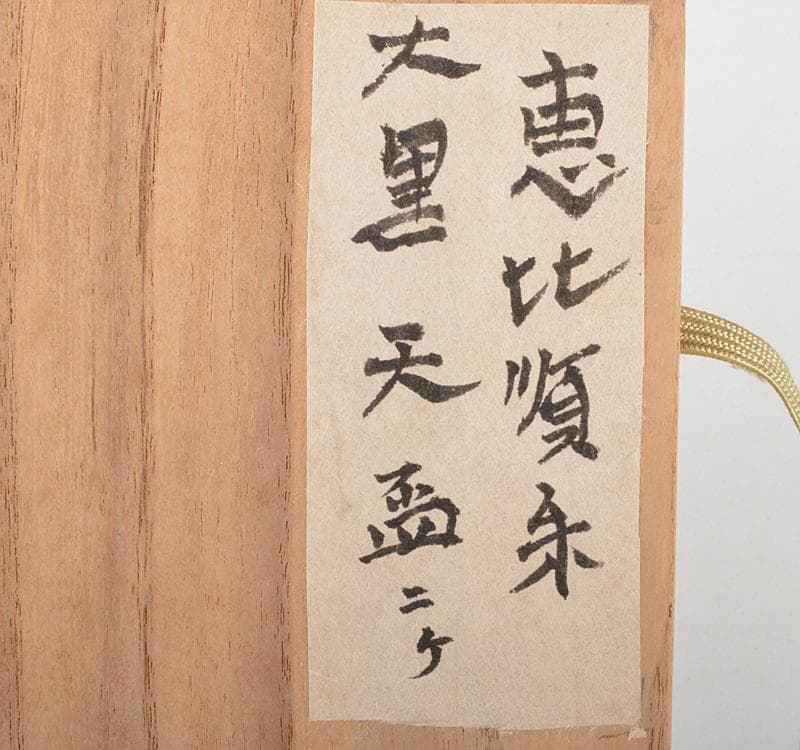 恵比順
大黒天盃二ケ